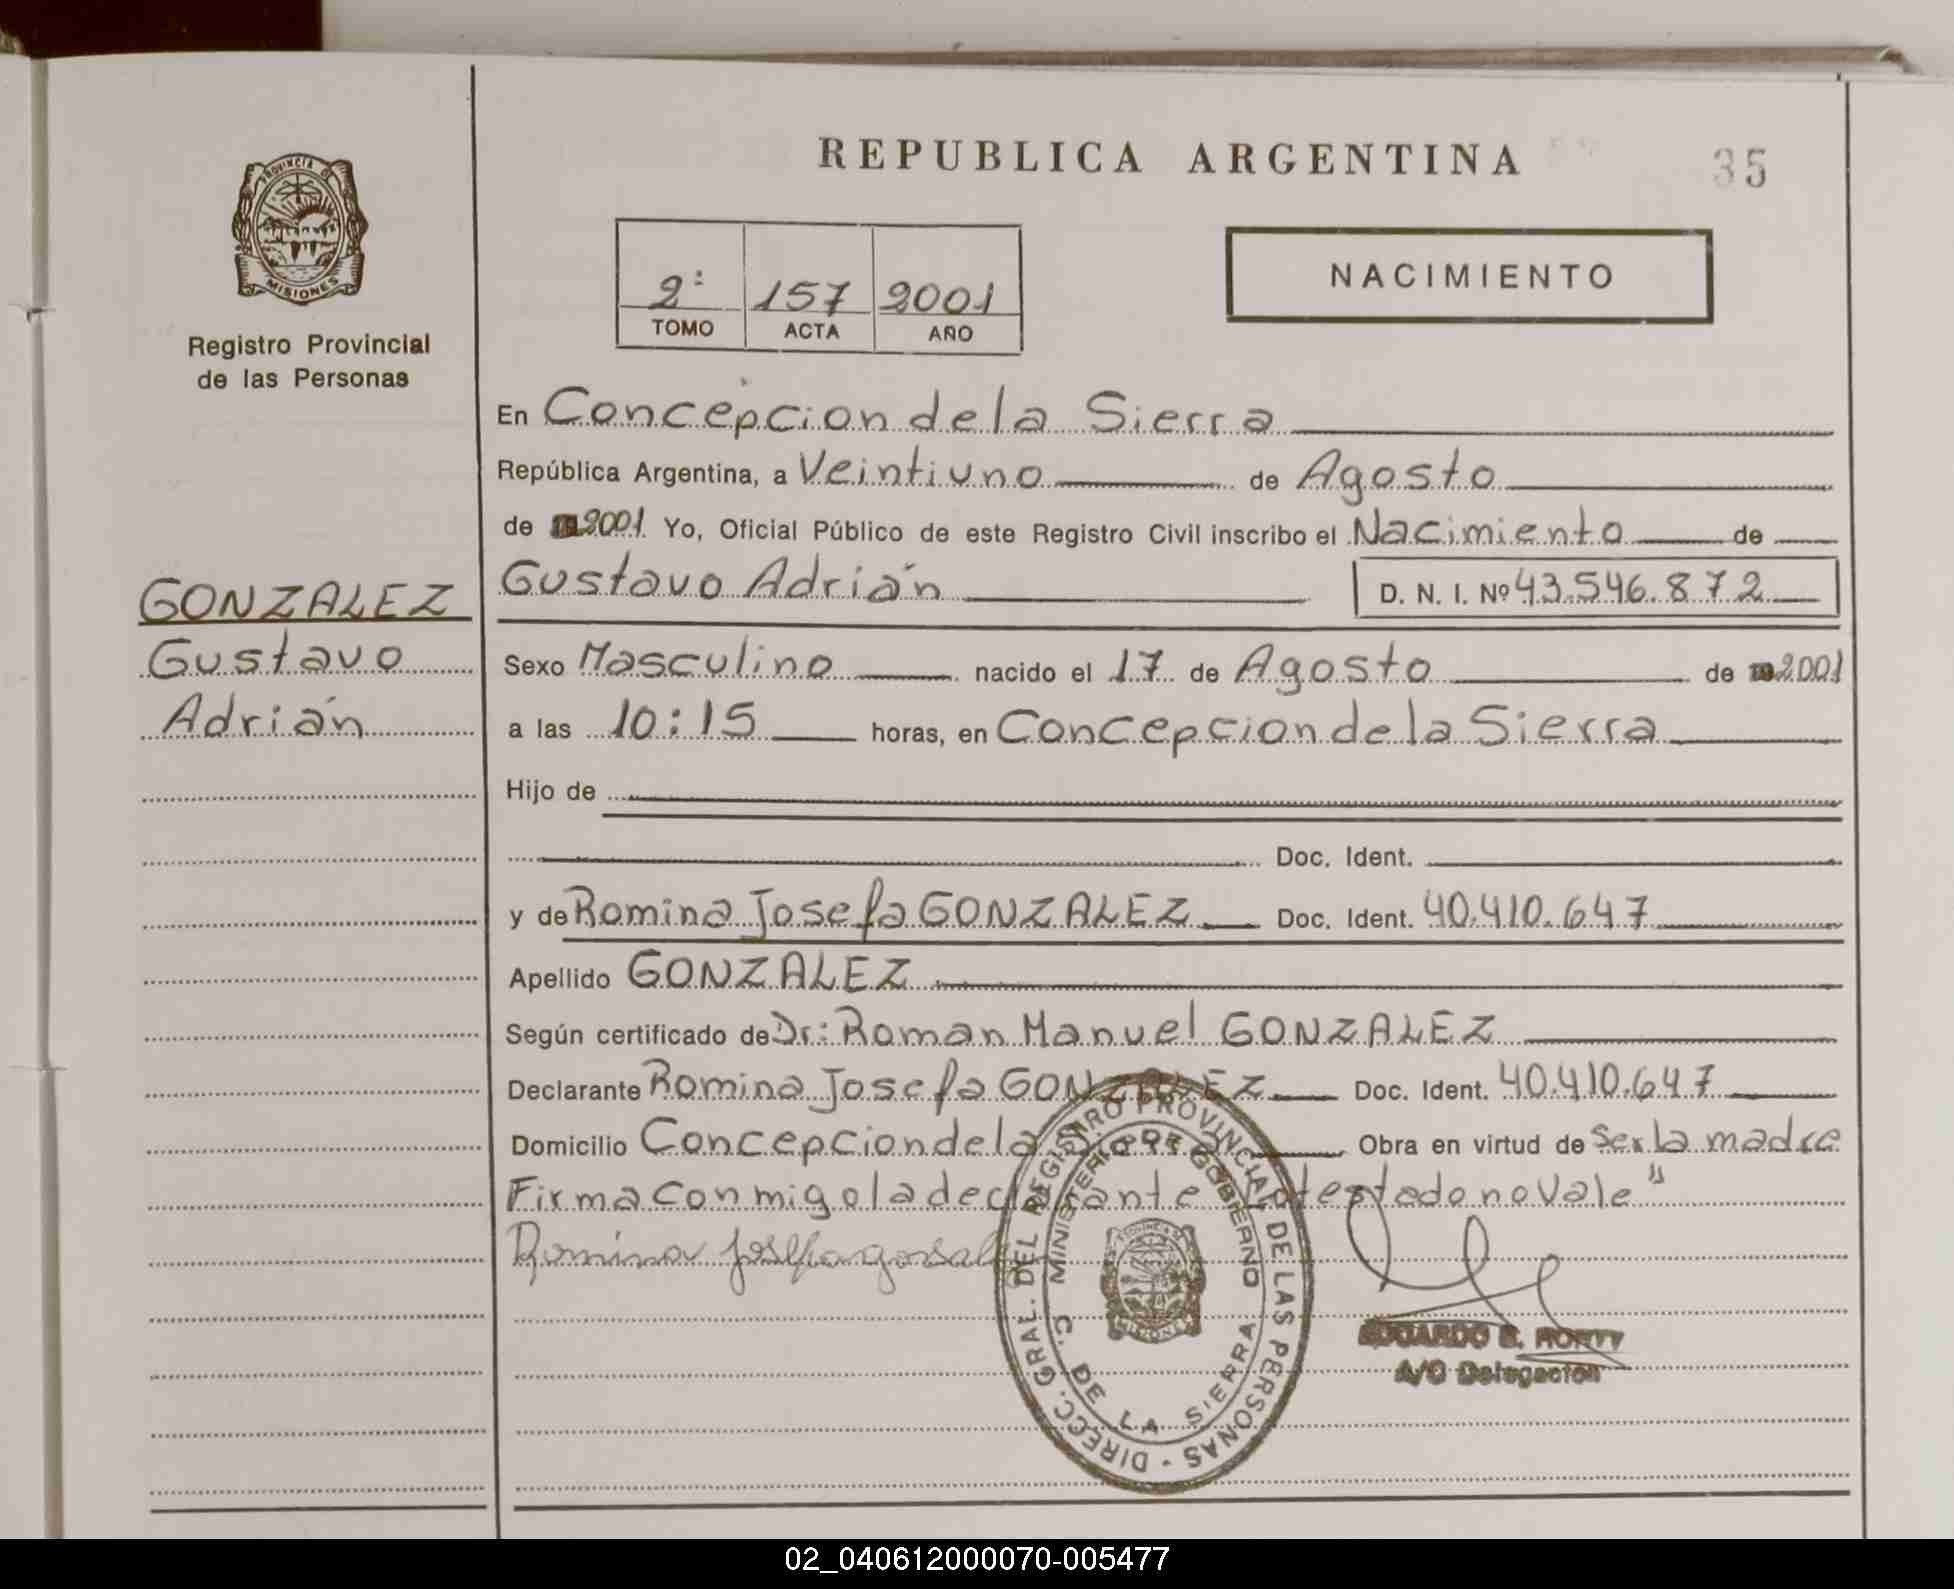 REPUBLICA ARGENTINA
35
PROVINCIA DE
MISIONES
Registro Provincial
de las Personas
2ª 157 2001
TOMO ACTA AÑO
NACIMIENTO
En Concepcion de la Sierra
República Argentina, a Veintiuno de Agosto
de 2001 Yo, Oficial Público de este Registro Civil inscribo el Nacimiento de
Gustavo Adrián D. N. I. Nº 43.546.872
GONZALEZ
Gustavo
Adrián
Sexo Masculino nacido el 17 de Agosto de 2001
a las 10:15 horas, en Concepcion de la Sierra
Hijo de
Doc. Ident.
y de Romina Josefa GONZALEZ Doc. Ident. 40.410.647
Apellido GONZALEZ
Según certificado de Dr: Roman Manuel GONZALEZ
Declarante Romina Josefa GONZALEZ Doc. Ident. 40.410.647
Domicilio Concepcion de la Sierra Obra en virtud de ser la madre
Firma conmigo la declarante testado no vale"
Romina Josefa
DIRECC. GRAL. DEL REGISTRO PROVINCIAL DE LAS PERSONAS -
MINISTERIO DE GOBIERNO
C. DE LA SIERRA
MISIONES
EDUARDO
A/C Delegacion
02_040612000070-005477